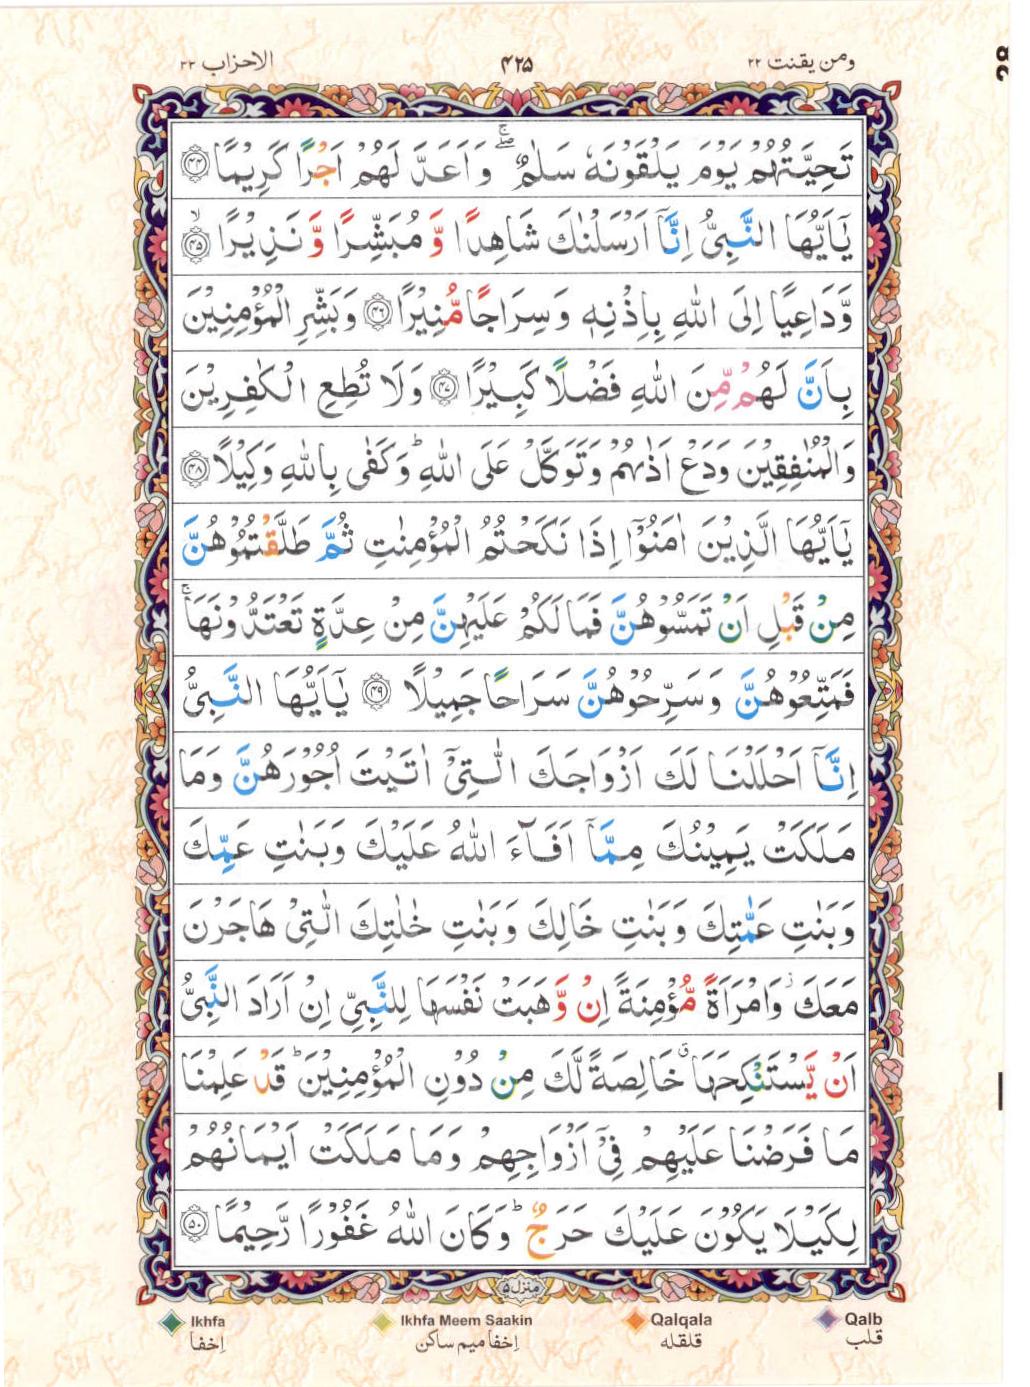 ومن يقنت ٢٢
۴۲۵
الاحزاب ٣٣
تَحِيَّتُهُمْ يَوْمَ يَلْقَوْنَهٗ سَلٰمٌ ۖۚ وَاَعَدَّ لَهُمْ اَجْرًا كَرِيْمًا ﴿۴۴﴾
يٰۤاَيُّهَا النَّبِيُّ اِنَّاۤ اَرْسَلْنٰكَ شَاهِدًا وَّ مُبَشِّرًا وَّ نَذِيْرًا ﴿۴۵﴾ ۙ
وَّدَاعِيًا اِلَى اللّٰهِ بِاِذْنِهٖ وَسِرَاجًا مُّنِيْرًا ﴿۴۶﴾ وَبَشِّرِ الْمُؤْمِنِيْنَ
بِاَنَّ لَهُمْ مِّنَ اللّٰهِ فَضْلًا كَبِيْرًا ﴿۴۷﴾ وَلَا تُطِعِ الْكٰفِرِيْنَ
وَالْمُنٰفِقِيْنَ وَدَعْ اَذٰىهُمْ وَتَوَكَّلْ عَلَى اللّٰهِ ؕ وَكَفٰى بِاللّٰهِ وَكِيْلًا ﴿۴۸﴾
يٰۤاَيُّهَا الَّذِيْنَ اٰمَنُوْۤا اِذَا نَكَحْتُمُ الْمُؤْمِنٰتِ ثُمَّ طَلَّقْتُمُوْهُنَّ
مِنْ قَبْلِ اَنْ تَمَسُّوْهُنَّ فَمَا لَكُمْ عَلَيْهِنَّ مِنْ عِدَّةٍ تَعْتَدُّوْنَهَا ۚ
فَمَتِّعُوْهُنَّ وَسَرِّحُوْهُنَّ سَرَاحًا جَمِيْلًا ﴿۴۹﴾ يٰۤاَيُّهَا النَّبِيُّ
اِنَّاۤ اَحْلَلْنَا لَكَ اَزْوَاجَكَ الّٰتِيْۤ اٰتَيْتَ اُجُوْرَهُنَّ وَمَا
مَلَكَتْ يَمِيْنُكَ مِمَّاۤ اَفَآءَ اللّٰهُ عَلَيْكَ وَبَنٰتِ عَمِّكَ
وَبَنٰتِ عَمّٰتِكَ وَبَنٰتِ خَالِكَ وَبَنٰتِ خٰلٰتِكَ الّٰتِيْ هَاجَرْنَ
مَعَكَ ؗ وَامْرَاَةً مُّؤْمِنَةً اِنْ وَّهَبَتْ نَفْسَهَا لِلنَّبِيِّ اِنْ اَرَادَ النَّبِيُّ
اَنْ يَّسْتَنْكِحَهَا ۗ خَالِصَةً لَّكَ مِنْ دُوْنِ الْمُؤْمِنِيْنَ ؕ قَدْ عَلِمْنَا
مَا فَرَضْنَا عَلَيْهِمْ فِيْۤ اَزْوَاجِهِمْ وَمَا مَلَكَتْ اَيْمَانُهُمْ
لِكَيْلَا يَكُوْنَ عَلَيْكَ حَرَجٌ ؕ وَكَانَ اللّٰهُ غَفُوْرًا رَّحِيْمًا ﴿۵۰﴾
منزل ۵
Ikhfa
Ikhfa Meem Saakin
Qalqala
Qalb
اِخفا
اِخفا میم ساکن
قلقله
قلب